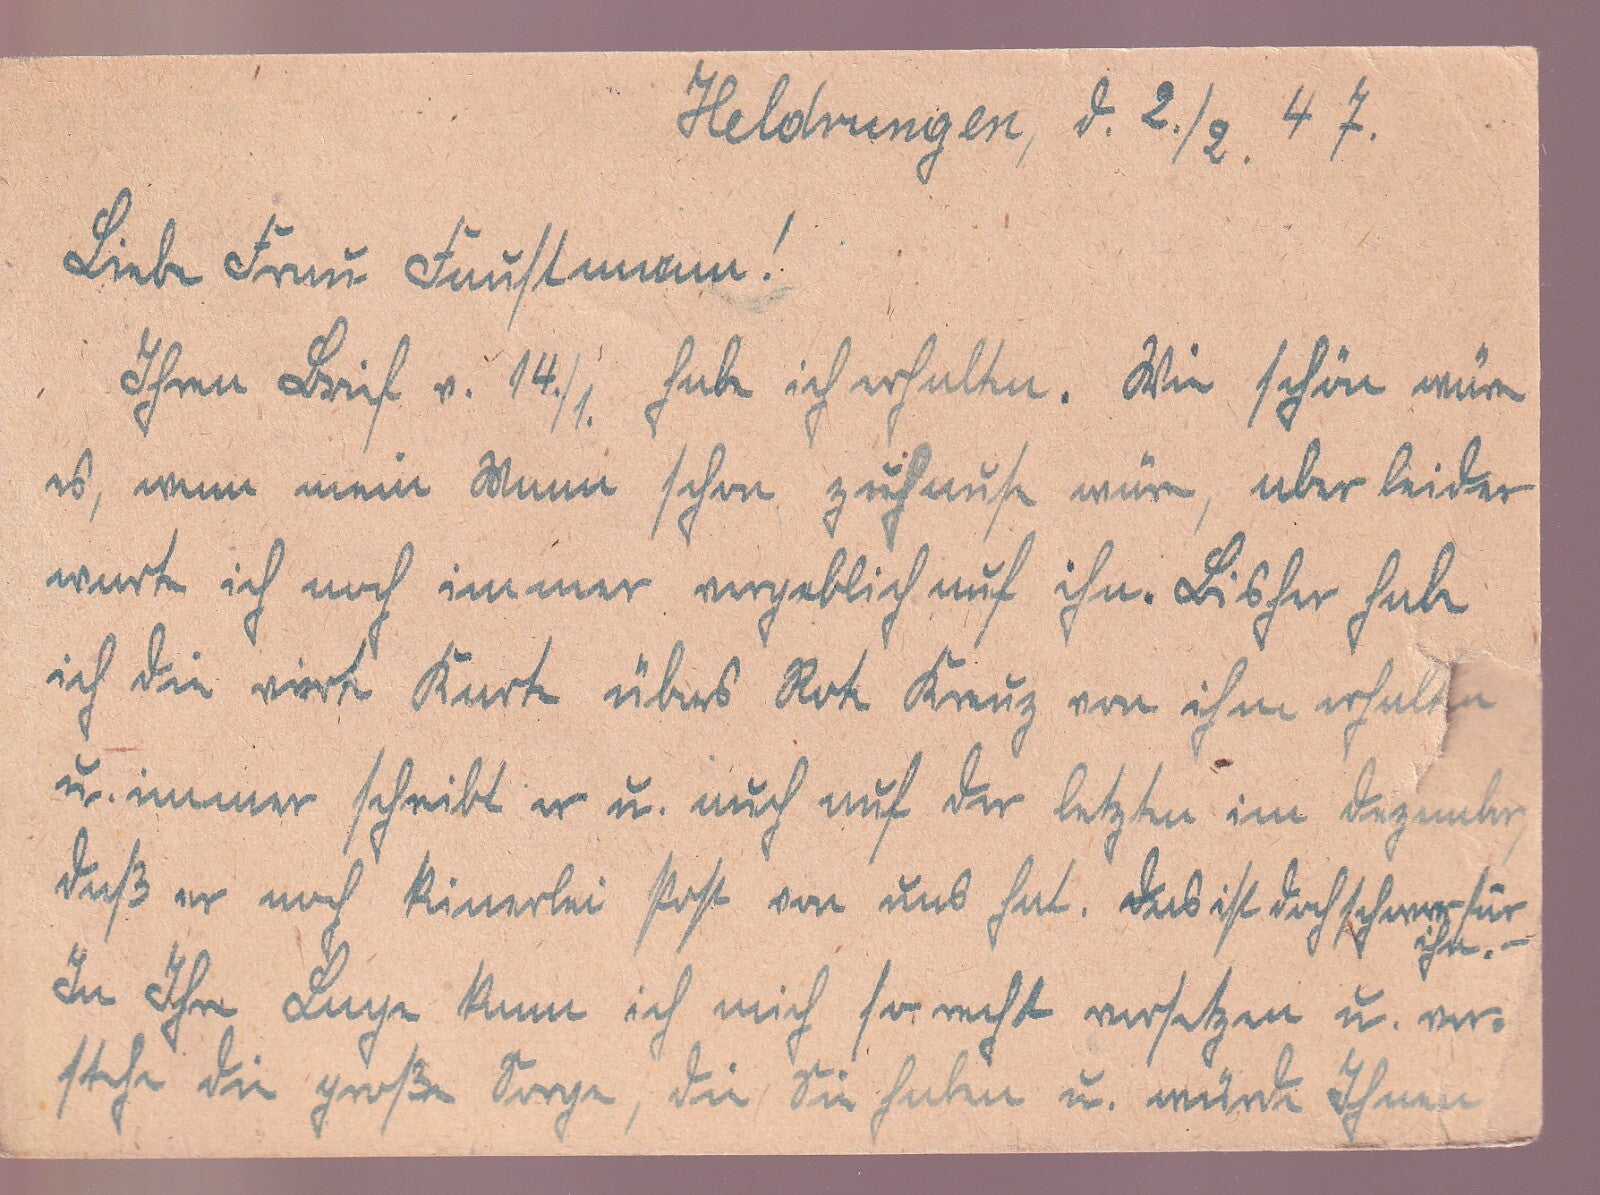 Heldrungen, d. 2./2. 47.
Liebe Frau Faustmann!
Ihren Brief v. 14./1. habe ich erhalten. Wie schön wäre
es, wenn mein Mann schon zuhause wäre, aber leider
warte ich noch immer vergeblich auf ihn. Bisher habe
ich die vierte Karte übers Rote Kreuz von ihm erhalten
u. immer schreibt er u. auch auf der letzten im Dezember,
daß er noch keinerlei Post von uns hat. Das ist doch schwer für
ihn. –
In Ihre Lage kann ich mich so recht versetzen u. ver-
stehe die große Sorge, die Sie haben u. würde Ihnen